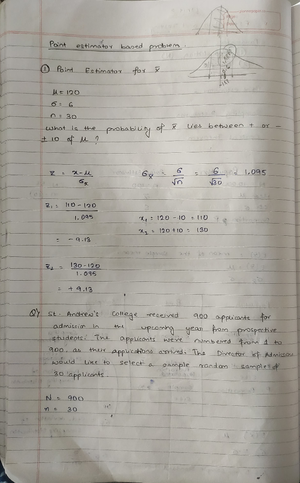 Point estimator based problem
① Point Estimator for x̄
μ = 120
σ = 6
n = 30
What is the probability of x̄ lies between + or -
± 10 of μ ?
z = x-μ / σx̄    σx̄ = σ / √n = 6 / √30 = 1.095
z₁ = 110-120 / 1.095    x₁ = 120-10 = 110
= -9.13    x₂ = 120+10 = 130
z₂ = 130-120 / 1.095
= +9.13
Q) St. Andrew's College received 900 applicants for
admission in the upcoming year from prospective
students. The applicants were numbered from 1 to
900 as their applications arrived. The Director of Admission
would like to select a sample random sample of
30 applicants.
N = 900
n = 30